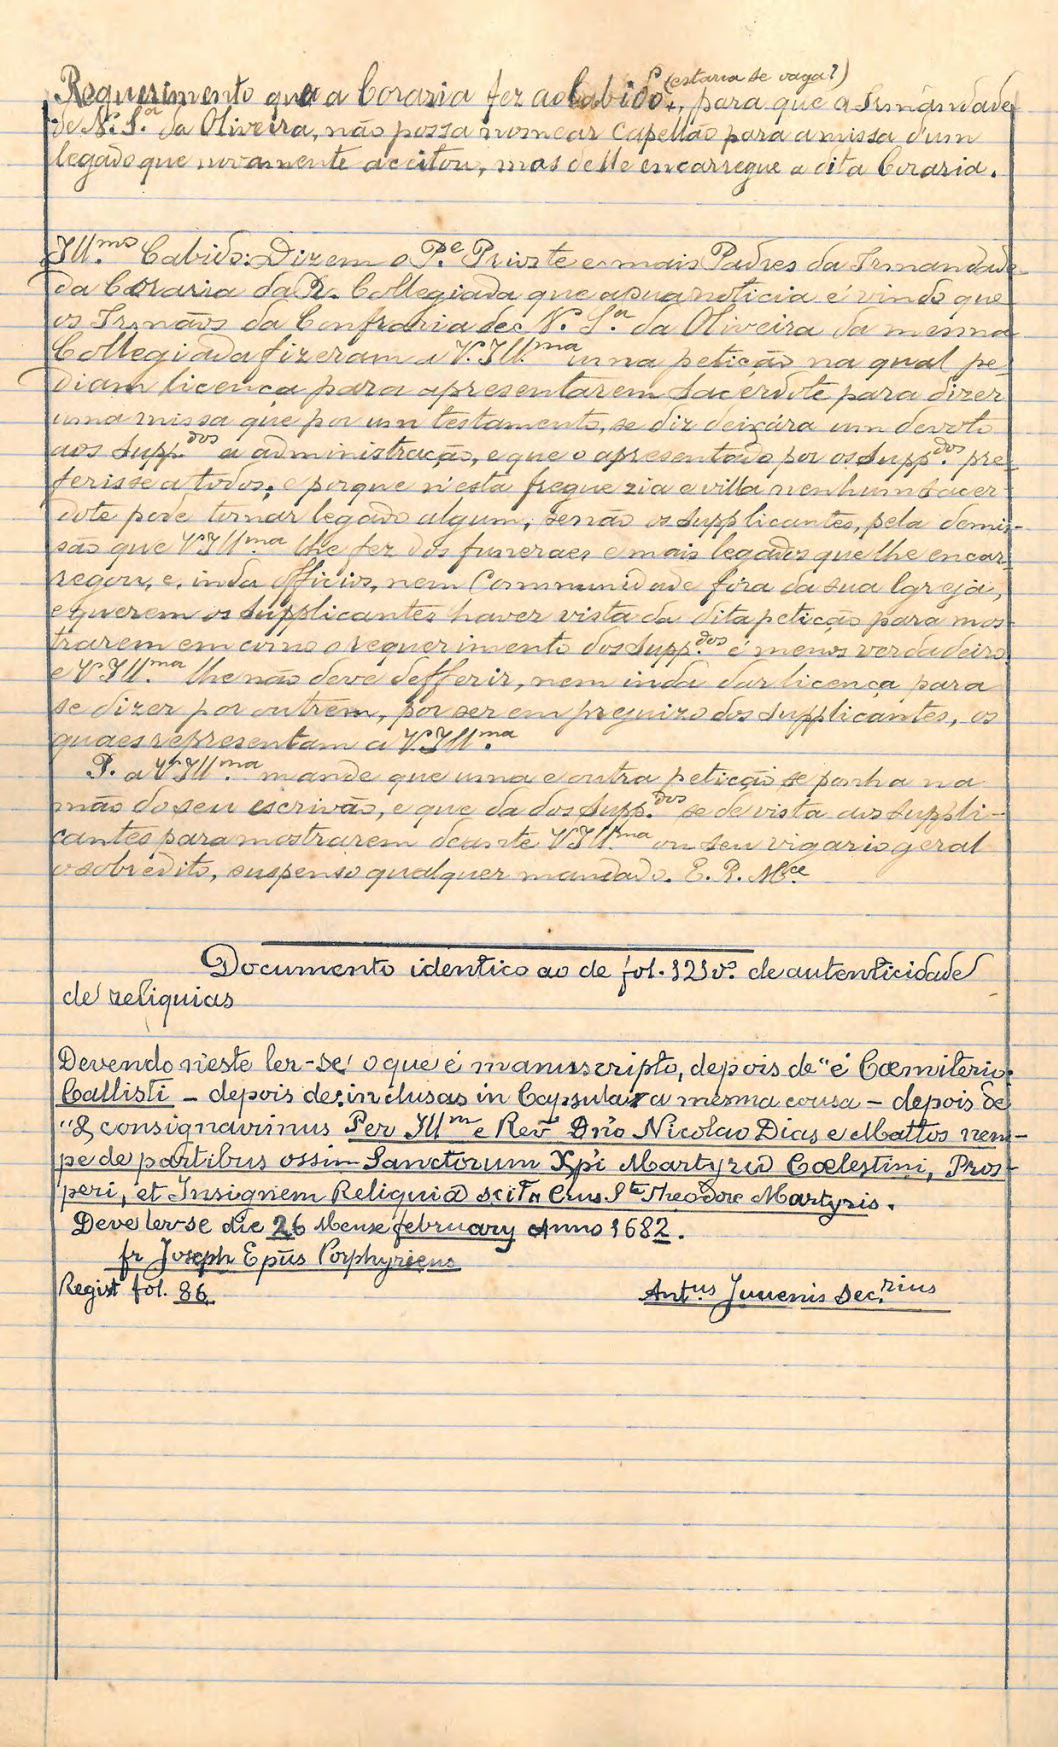 Requerimento que a Coraria fez ao Cabido, (estaria se vaga?) para que a Irmandade
de N. S.ª da Oliveira, não possa nomear Capellão para a missa d'um
legado que novamente acceitou, mas delle encarregue a dita Coraria.
Ill.mo Cabido: Dizem o P.e Prioste e mais Padres da Irmandade
da Coraria da R. Collegiada que a sua noticia é vindo que
os Irmãos da Confraria de N. S.ª da Oliveira da mesma
Collegiada fizeram a V. Ill.ma uma petição na qual pe-
diam licença para apresentarem sacerdote para dizer
uma missa que por um testamento, se diz deixára um devoto
aos supp.dos a administração, e que o apresentado por os supp.dos pre-
ferisse a todos; e porque n'esta freguezia e villa nenhum sacer
dote pode tomar legado algum, senão os supplicantes, pela demis-
são que V. Ill.ma lhe fez dos funeraes e mais legados que lhe encar-
regou, e, inda officios, nem Communidade fora da sua Igreja,
e querem os supplicantes haver vista da dita petição para mos-
trarem em como o requerimento dos supp.dos é menos verdadeiro
e V. Ill.ma lhe não deve defferir, nem inda dar licença para
se dizer por outrem, por ser em prejuizo dos supplicantes, os
quaes representam a V. Ill.ma
P. a V. Ill.ma mande que uma e outra petição se ponha na
mão do seu escrivão, e que da dos supp.dos se dê vista aos suppli-
cantes para mostrarem deante V. Ill.ma ou seu vigario geral
o sobredito, suspenso qualquer mandado. E. R. M.ce
Documento identico ao de fol. 121 v.º de autenticidade
de reliquias
Devendo n'este ler-se o que é manuscripto, depois de "é Cœmiterio
Callisti – depois de: inclusas in Capsula a mesma cousa – depois de
"& consignavimus Per Ill.m e Rev. Dño Nicolao Dias e Mattos nem-
pe de partibus ossium Sanctorum Xpi Martyrũ Cœlestini, Pros-
peri, et Insignem Reliquiã Ste Theodore Martyris.
Deve ler-se die 26 Mense february Anno 1682.
fr Joseph Epũs Porphyriens
Regist fol. 86
Ant.us Juvenis Sec.rius